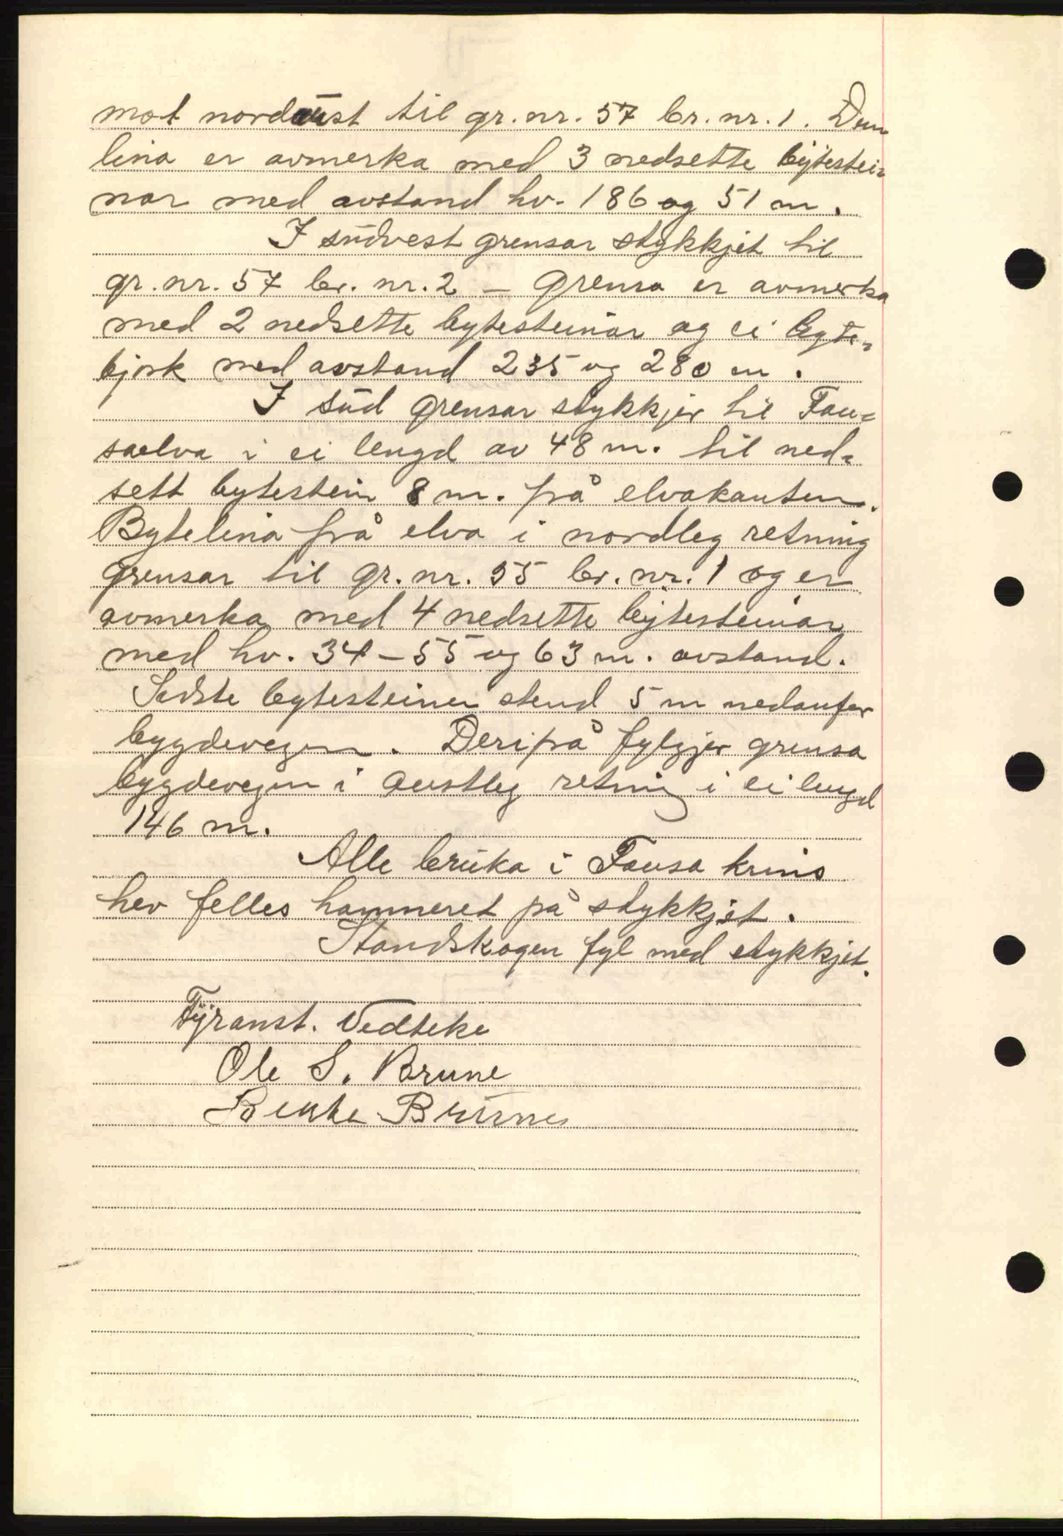 mot nordaust til gr. nr. 57 br. nr. 1. Den
lina er avmerka med 3 nedsette bytestei-
nar med avstand hv. 186 og 51 m.
I sudvest grensar stykkjet til
gr. nr. 57 br. nr. 2 – Grensa er avmerka
med 2 nedsette bytesteinar og ei byte-
bjørk med avstand 235 og 280 m.
I sud grensar stykkjer til Fau-
saelva i ei lengd av 48 m. til ned-
sett bytestein 8 m. frå elvakanten.
Bytelina frå elva i nordleg retning
grensar til gr. nr. 55 br. nr. 1 og er
avmerka med 4 nedsette bytesteinar
med hv. 34 – 55 og 63 m. avstand.
Sidste bytesteinen stend 5 m nedanfor
bygdevegen. Derifrå fylgjer grensa
bygdevegen i austleg retning i ei lengd
146 m.
Alle bruka i Fausa krins
hev felles hamneret på stykkjet.
Standskogen fyl med stykkjet.
Ole S. Brune